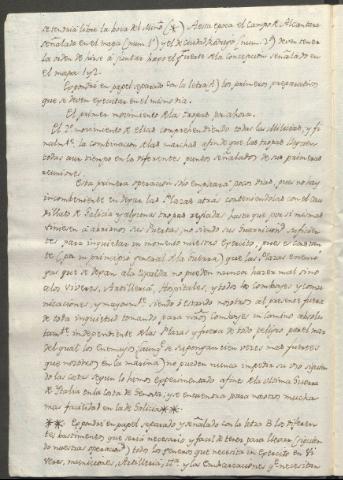 se tendria libre la boca del Miño (*) A esta epoca el campo de Alcantara
señalado en el mapa (num. 1º) y el de Ciudad Rodrigo (num. 2º) deven tener
la orden de hirse à juntar hazia el fuerte de la Concepcion señalado en
el mapa 1 y 2.
Expondré en papel separado con la letra A) los primeros preparativos
que se deven executar en el mismo dia.
El primer movimiento de la tropas por ahora.
El 2º movimiento de ellas comprehendiendo todas las Milicias, y fi
nalm.te la combinacion de las marchas afinde que las tropas lleguen
todas a un tiempo en los diferentes puntos señalados de sus primeras
reuniones.
Esta primera operacion solo empleará pocos dias, pues no hay
incombeniente en dejar las Plazas atrás conteniendolas con el
de Galicia y algunas tropas regladas hasta que por sí mismas
vinieren à abrirnos sus Puertas, no siendo sus Guarniciones suficien
tes para inquietar un momento nuestro Exercito, pues es constan
te (por un principio general de la Guerra) que las Plazas enemi
gas que se dejan a la espalda no pueden nunca hazer mal sino
a los viveres, Artilleria, Hospitales, y todos los comboyes y comu
nicaciones, y mayorm.te siendo ò estando nosotros al presente fuera
de toda inquietud tomando para un camino absolu
tam.te independiente de las Plazas y fuera de todo peligro por el mar
del qual los Enemigos (aunq.e se supongan cien veces mas fuertes
que nosotros en la marina) no pueden nunca impedir su uso siguien
do las costas segun lo hemos experimentado en la ultima Guerra
de Italia en la costa de Genova; y se encuentra para nosotros mucha
mas facilidad en la de Galicia **
** Expondré en papel separado y señalado con la letra B los diferen
tes bastimentos que será necesario y facil de tener para llevar (siguien
do nuestras operacion.s) todos los generos que necesita un Exercito en Vi
veres, municiones, Artilleria, &.ª y las Embarcaciones q.e necesitan